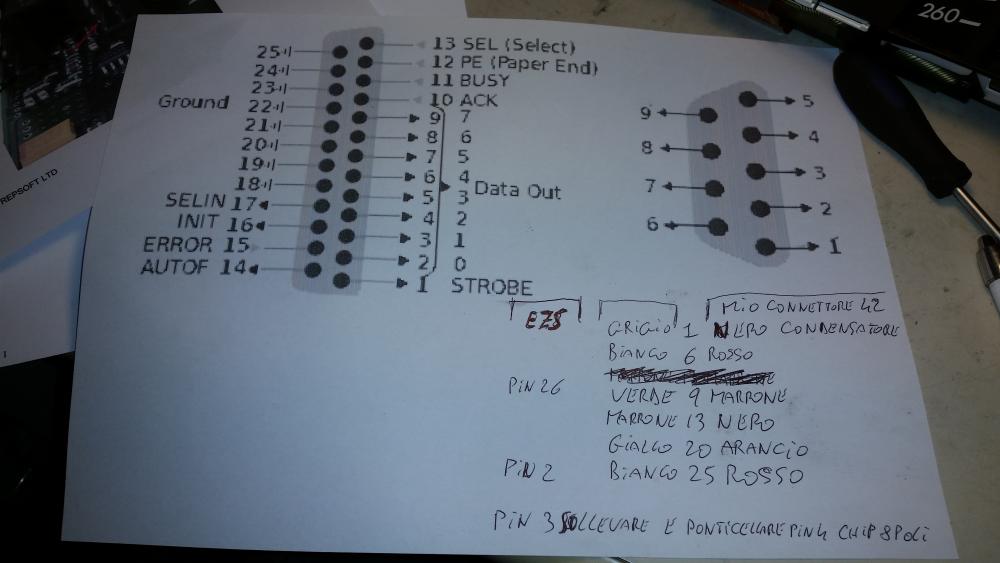 260
REPSOFT LTD
13 SEL (Select)
12 PE (Paper End)
11 BUSY
10 ACK
9 7
8 6
7 5
6 4
5 3
4 2
3 1
2 0
1 STROBE
Data Out
25
24
23
22
21
20
19
18
Ground
SELIN 17
INIT 16
ERROR 15
AUTOF 14
9
8
7
6
5
4
3
2
1
EZS MIO CONNETTORE 42
GRIGIO 1 NERO CONDENSATORE
BIANCO 6 ROSSO
PIN 26 VERDE 9 MARRONE
MARRONE 13 NERO
GIALLO 20 ARANCIO
PIN 2 BIANCO 25 ROSSO
PIN 3 SOLLEVARE E PONTICELLARE PIN 4 CHIP 8 POLI
1